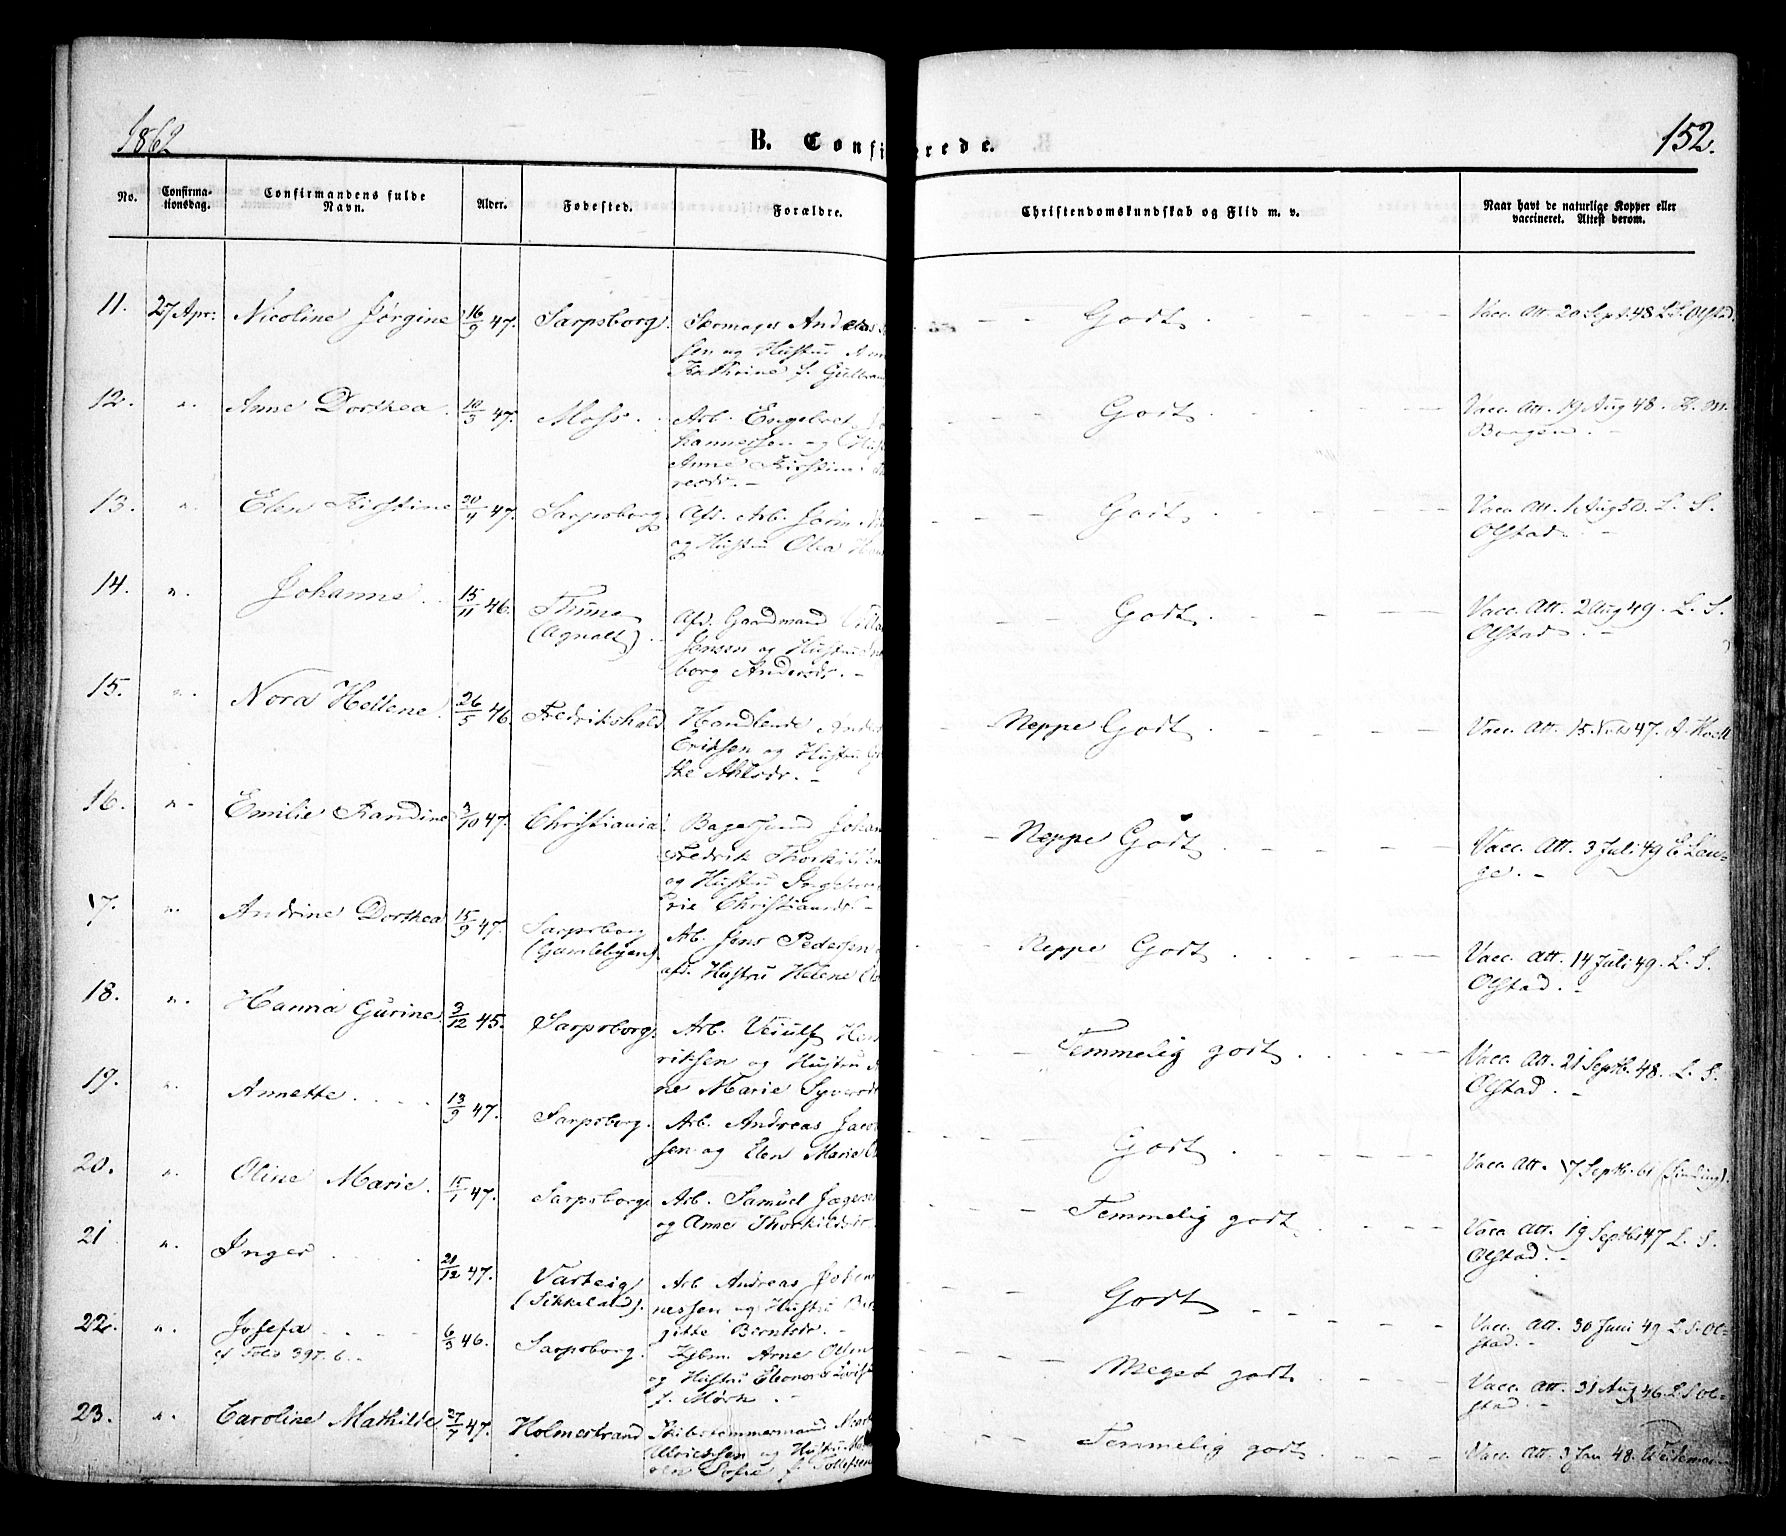 1862
B. Confi rede.
152.
No.
Confirma-
tionsdag.
Confirmandens fulde
Navn.
Alder.
Fødested.
Forældre.
Christendomskundskab og Flid m. v.
Naar havt de naturlige Kopper eller
vaccineret. Attest derom.
11. 27 Apr: Nicoline Jørgine 16/9 47. Sarpsborg. Andreas Godt Vacc. Att. 20 Sept. 48 L. S. Olstad.
sen og Hustru
Kathrine f.
12. " Anne Dorthea 10/3 47. Moss. Arb. Engebret Godt Vacc. Att. 19 Aug 48.
hannessen og
Anne Kirstine
13. " Elen Kirstine 30/4 47. Sarpsborg Afd. Arb. Godt Vacc. Att. 1 Aug 50. L. S.
og Hustru Olea Olstad.
14. " Johanne 15/11 46. Thune Afd. Gaardmand Godt Vacc. Att. 2 Aug 49. L. S.
(Agnalt). Jensen og Hustru Olstad
borg Andersdr.
15. " Nora Hellene 26/5 46. Fredrikshald Handlende Neppe Godt Vacc. Att. 15. 47. A.
Eriksen og Hustru
16. " Emilie Randine 10 47. Christiania Bagersvend Johan Neppe Godt Vacc. Att. 3 Juli 49 Lan-
Fredrik Thorkildsen ge.
og Hustru
rie Christiansdr.
17. " Andrine Dorthea 15/9 47. Sarpsborg Arb. Jens Pedersen Neppe Godt Vacc. Att. 14 Juli 49. L. S.
(Gamlebyen). afd. Hustru Helene Olstad.
18. " Hanna Gurine 3/12 45. Sarpsborg. Arb. Hen Temmelig godt Vacc. Att. 21 Septb. 48. L. S.
riksen og Hustru Olstad.
ne Marie Syversdr
19. " Annette 13/9 47. Sarpsborg. Arb. Andreas Jacob Godt Vacc. Att. 17 Septb. 61 (Sinding).
sen og Elen Marie
20. " Oline Marie. 15/1 47. Sarpsborg. Arb. Samuel Temmelig godt Vacc. Att. 19 Septb 47 L. S.
og Anne Thorkildsdr. Olstad.
21 " Inger 21/12 47. Varteig Arb Andreas Johan Godt Vacc. Att. 30 Juni 49 L. S. Ol-
(Sikkeland). nessen og Hustru Bir stad.
gitte Berntsdr.
22. " Josefa 6/3 46. Sarpsborg. Kjbm. Arne Olsen Meget godt Vacc. Att. 31 Aug 46. L S Ol-
cf Folio 397. 6. og Hustru Eleonora stad.
f. Mørk
23. " Caroline Mathilde 27/7 47. Holmestrand Skibstømmermand Temmelig godt Vacc. Att. 3 Jan 48.
Ulrichsen og Hustru
Sofie f. Tollefsen